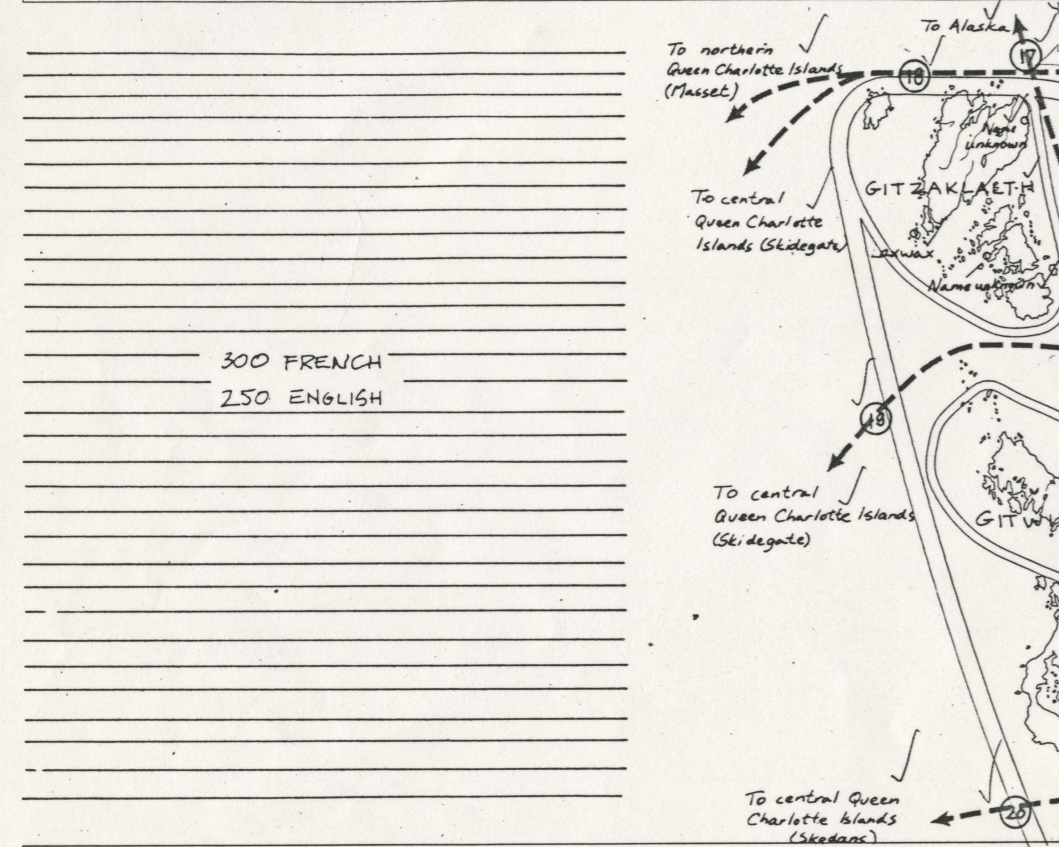 300 FRENCH
250 ENGLISH
To Alaska
17
To northern
Queen Charlotte Islands
(Masset)
18
Name
unknown
GITZAKLAETH
To central
Queen Charlotte
Islands (Skidegate)
Name unknown
19
To central
Queen Charlotte Islands
(Skidegate)
To central Queen
Charlotte Islands
(Skedans)
20